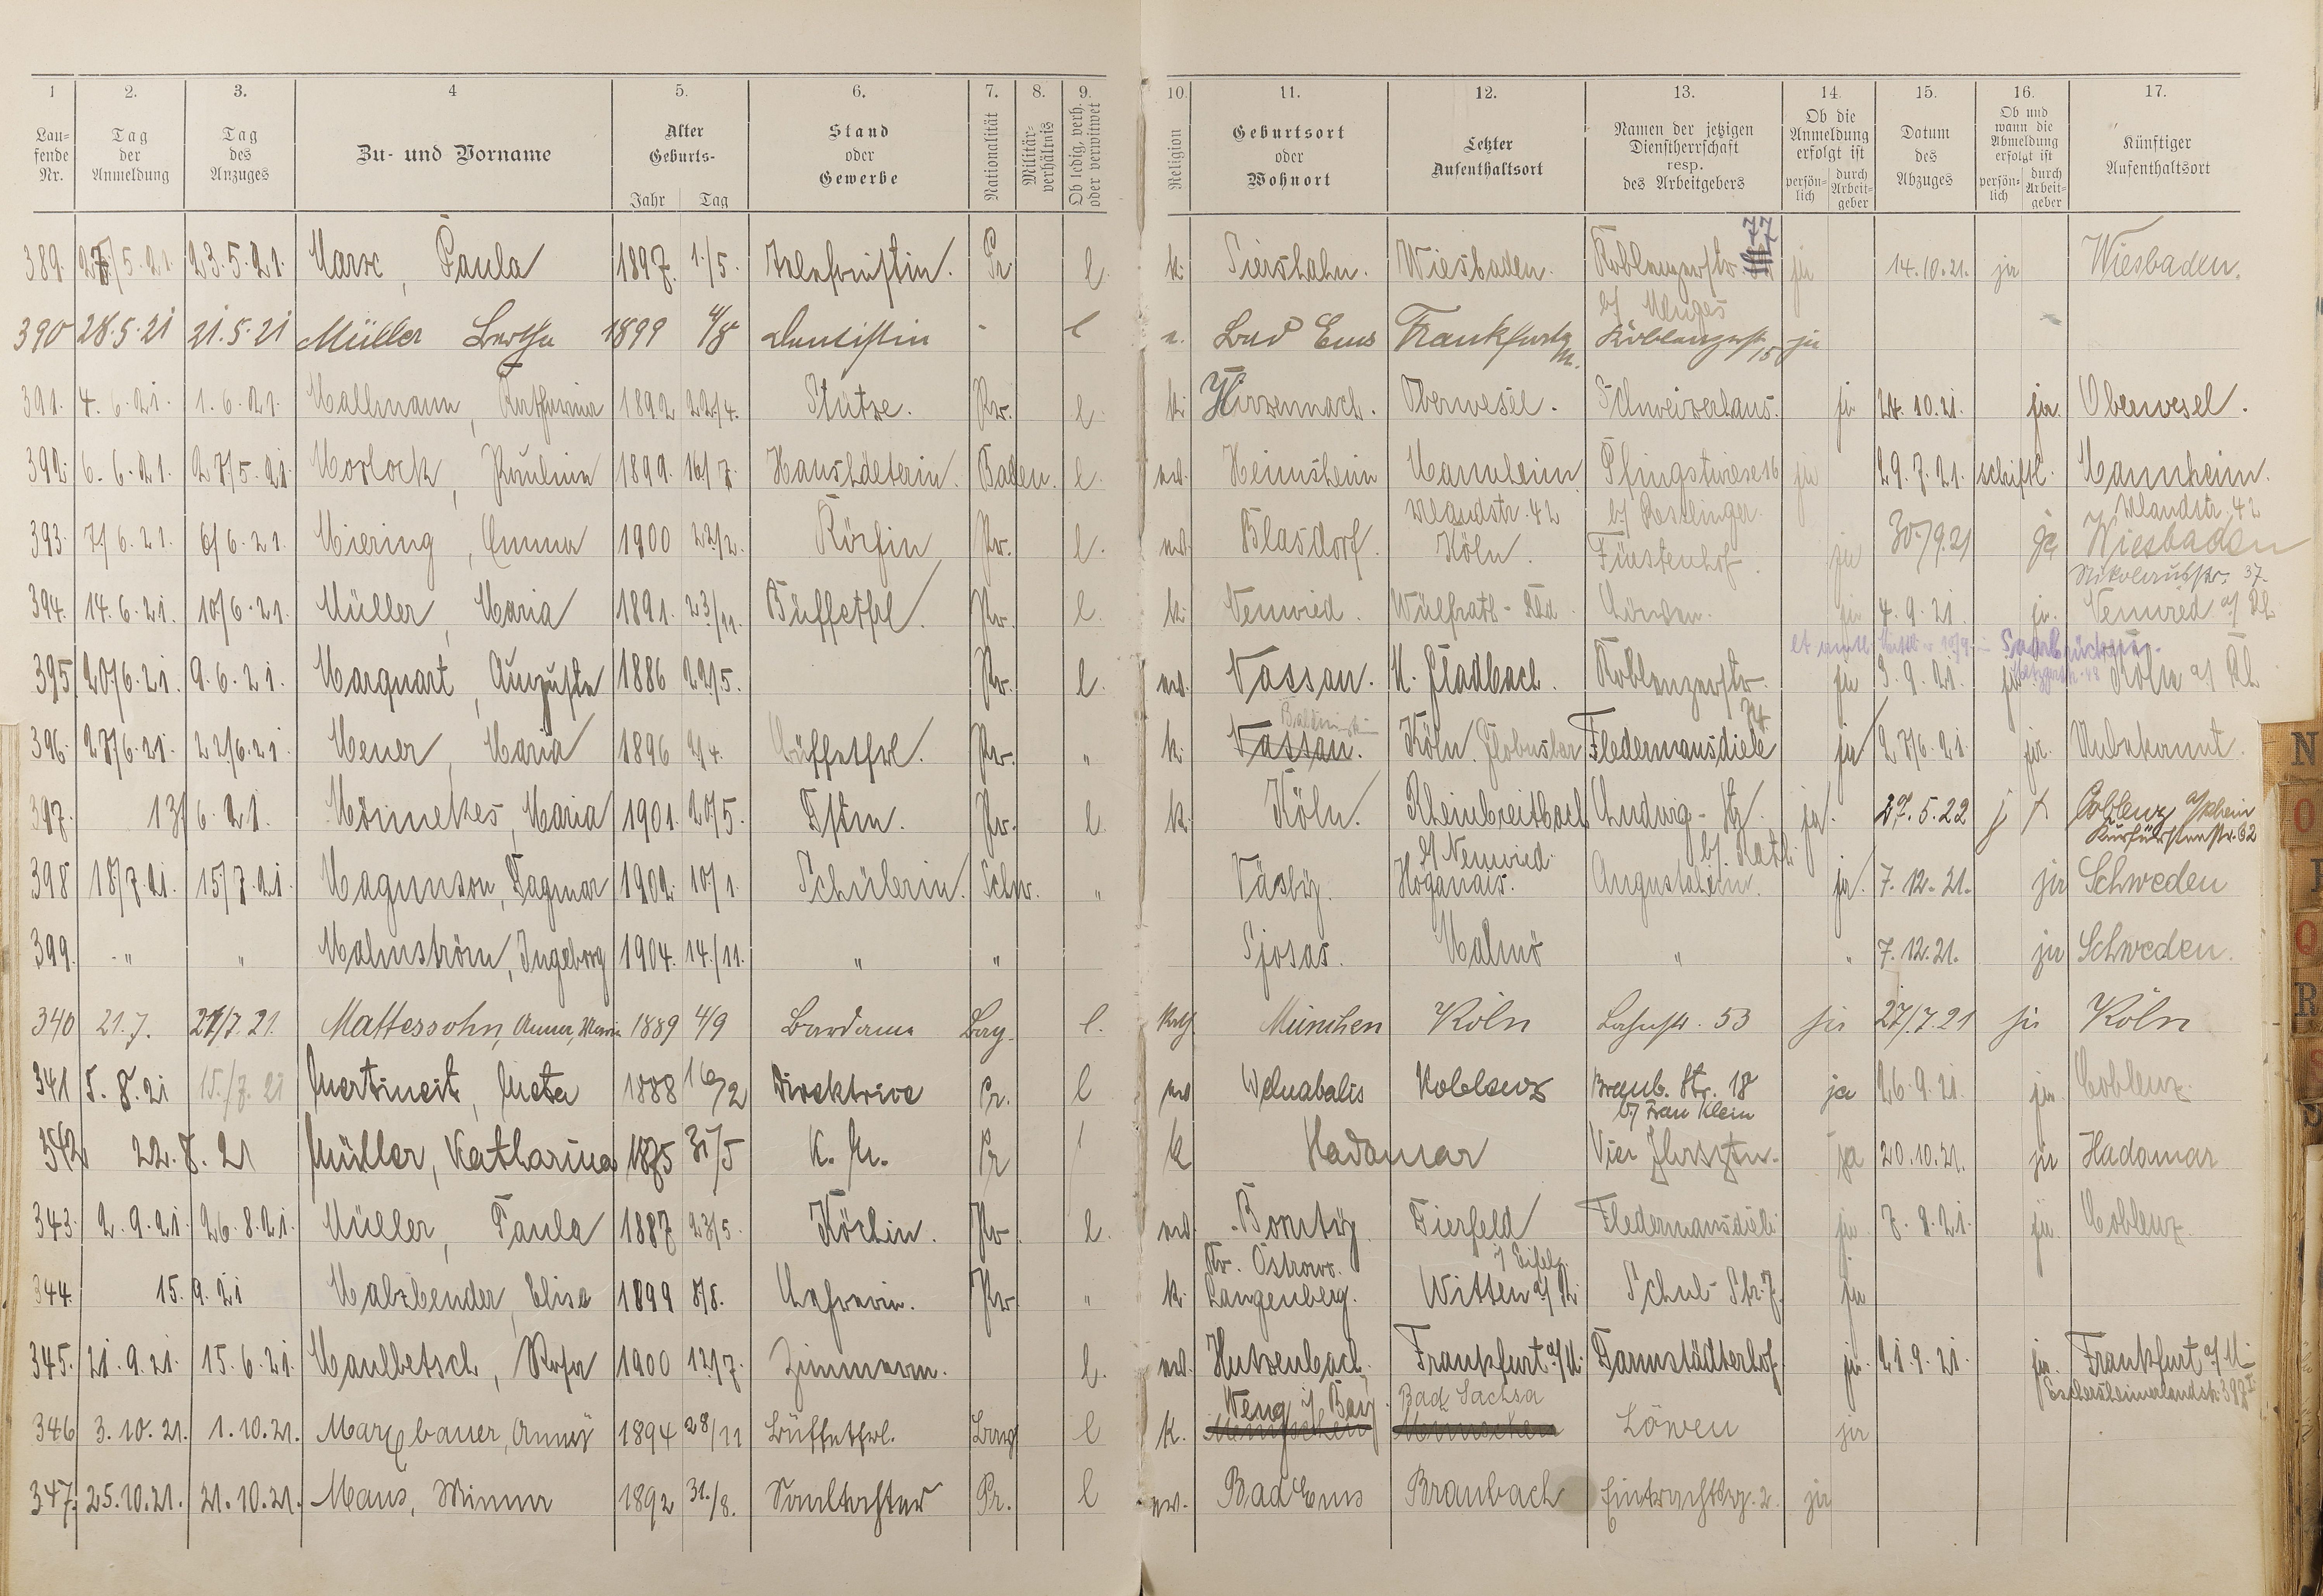 1 2. 3. 4 5. 6. 7. 8. 9. 10. 11. 12. 13. 14. 15. 16. 17.
Lau-fende Nr. Tag der Anmeldung Tag des Anzuges Zu- und Vorname Alter Geburts- Jahr Tag Stand oder Gewerbe Nationalität Militär-verhältnis Ob ledig, verh. oder verwitwet Religion Geburtsort oder Wohnort Letzter Aufenthaltsort Namen der jetzigen Dienstherrschaft resp. des Arbeitgebers Ob die Anmeldung erfolgt ist persön-lich durch Arbeit-geber Datum des Abzuges Ob und wann die Abmeldung erfolgt ist persön-lich durch Arbeit-geber Künftiger Aufenthaltsort
389. 5.21. 23.5.21. Marx, Paula 1897. 1./5. Telefonistin. Pr l. k. Siershahn. Wiesbaden. Koblenzerstr. 77 ja 14.10.21. ja Wiesbaden.
390 28.5.21 21.5.21 Müller Bertha 1899 4/8 Dentistin - l e. Bad Ems Frankfurt a/M. Koblenzerstr. 15 ja
391. 4.6.21. 1.6.21. Mallmann, Katharina 1892 22/4. Stütze. Pr. l. k. Hirzennach. Oberwesel. Schweizerhaus. ja 24.10.21. ja. Oberwesel.
392. 6.6.21. 27/5.21. Morlock, Pauline 1899. 16/7. Haushälterin. Baden. l. ev. Heimsheim Mannheim Pfingstwiese 16 ja 29.7.21. schriftl. Mannheim.
393. 7/6.21. 6/6.21. Miering, Emma 1900 22/2. Köchin Pr. l. ev. Blasdorf. Köln. Fürstenhof. ja 30./9.21 ja Wiesbaden
Nikolausstr. 37.
394. 14.6.21. 10/6.21. Müller, Maria 1891. 23/11. Büffetfrl. Pr. l. k. Neuwied. Wülfrath - Rhld. Löwen. ja 4.9.21 ja. Neuwied a/Rh.
395 20/6.21. 9.6.21. Marquart, Auguste 1886 22/5. Pr. l. ev. Nassau. M. Gladbach. Koblenzerstr. 74 ja 3.9.21. ja Köln a/Rh
396. 27/6.21. 22/6.21. Meuer, Maria 1896 2/4. Büffetfrl. Pr. " k. Nassau. Köln. Globusbar Fledermausdiele ja 27/6.21 ja. Unbekannt.
397. 13/6.21. Mönnekes, Maria 1901. 20/5. Pr. l. k. Köln. Rheinbreitbach b/Neuwied. Ludwig-Str. b/. Rath. ja. 5.22 j Coblenz a/Rhein
Kurfürstenstr. 62
398 18/7.21. 15/7.21. Magnuson, Dagmar 1902. 10/1. Schülerin. Schw. " Väsby. Höganäs. Augustaheim. ja. 7.12.21. ja Schweden
399. " " Malmström, Ingeborg 1904. 14./11. " " Sjosas. Malmö " " 7.12.21. ja Schweden.
340 21.7. 21/7.21. Mattessohn, Anna, Maria 1889 4/9 Bardame Bay. l. Kath München Köln Lahnstr. 53 ja 27/.7.21 ja Köln
341 5.8.21 15./7.21 Martineit, Meta 1888 16/2 Direktrice Pr. l ev Koblenz Braub. Str. 18 b/ Frau Klein ja 26.9.21. ja. Coblenz.
342 22.8.21 Müller, Katharina 1875 31/5 K. M. Pr l k Hadamar Vier Jhrszten. ja 20.10.21. ja Hadamar
343. 2.9.21. 26.8.21. Müller, Paula 1887 23/5. Köchin. Pr. l. ev. Kr. Ostrowo. Fierfeld i/Eifel. Fledermausdiele ja 7.9.21. ja. Coblenz.
344. 15.9.21 Malzbender, Elisa 1899 8/8. Lehrerin. Pr. " k. Langenberg. Witten a/R. Schul-Str. 7. ja
345. 21.9.21. 15.6.21. Maulbetsch, Rosa 1900 12/7. Zimmerm. l. ev. Hutzenbach. Frankfurt a/M. Darmstädterhof. ja. 21.9.21. ja. Frankfurt a/M.
346 3.10.21. 1.10.21. Marxbauer, Anny 1894 28/11 Büffetfrl. Bay l k. Weng i/Bay. Bad Sachsa Löwen ja
347. 25.10.21. 21.10.21. Maus, Minna 1892 31./8. Haustochter Pr. l ev. Bad Ems Braubach Eintrachtsg. 2. ja